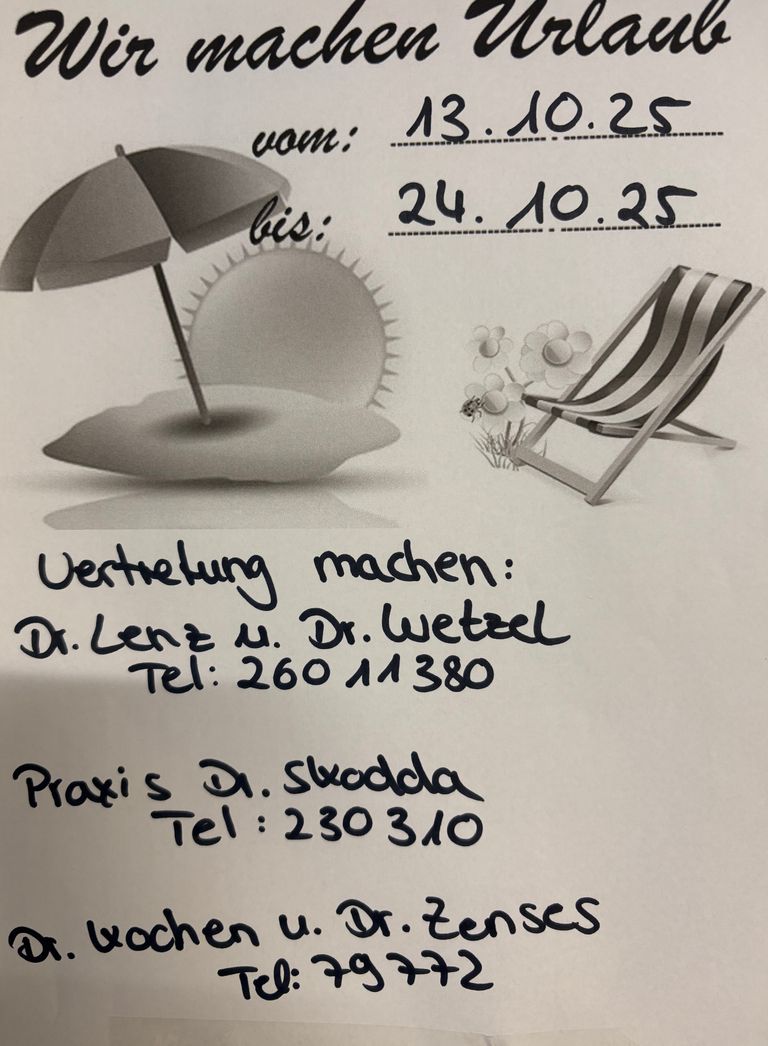 Wir machen Urlaub
vom: 13.10.25
bis: 24.10.25
Vertretung machen:
Dr. Lenz u. Dr. Wetzel
Tel: 260 11 380
Praxis Dr. Skodda
Tel: 230 310
Dr. Kochen u. Dr. Zenses
Tel: 79 772